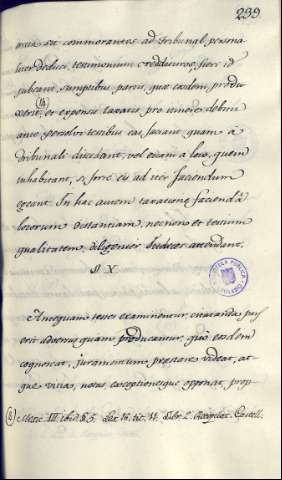 299
commorantes ad tribunal persona
liter deduci, testimonium credituros, fieri id
jubeant, sumptibus partis, quæ eosdem produ
xerit, (a) et expensis taxatis pro tenore debiti
ante persolvi testibus eas faciant, quam à
tribunali discedant; vel etiam à loco, quem
inhabitant, si forte eis ad iter faciendum
egeant. In hac autem taxatione facienda
locorum distantiam, necnon et testium
qualitatem, diligenter Judices attendant.
§ X.
Antequam testes examinentur, citanda pars
erit adversus quam producantur, quo eosdem
cognoscat, juramentum præstare videat, at-
que vicias, notas, exceptionesque opponat, prop-
ibid. § 5. tit. 11. Lib. 2.